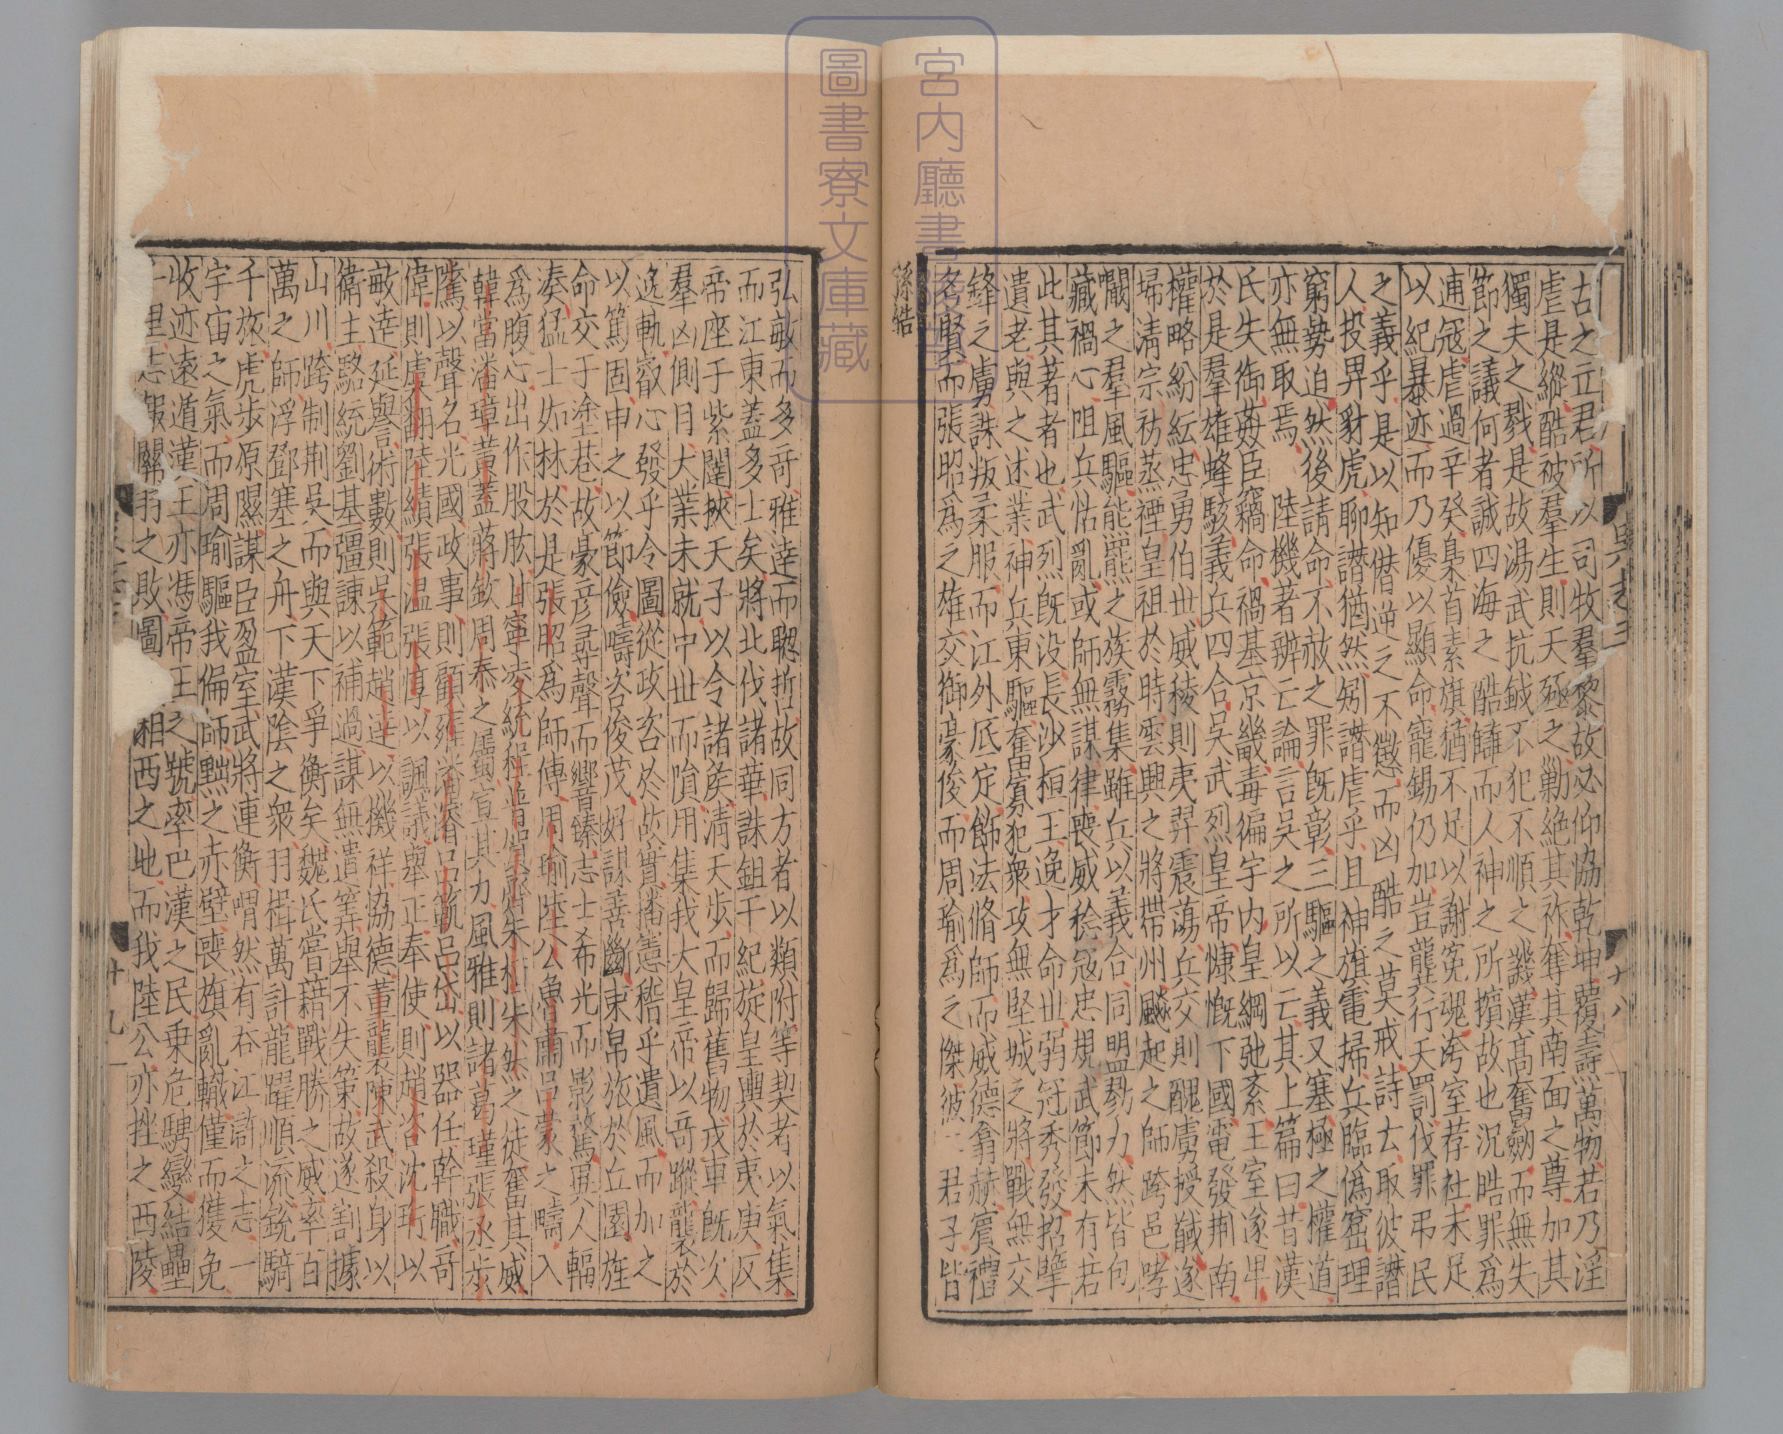 宮内廳書陵部
圖書寮文庫藏
古之立君所以司牧羣黎故必仰協乾坤覆燾萬物若乃淫
虐是縱酷被羣生則天殛之勦絶其祚奪其南面之尊加其
獨夫之戮是故湯武抗鉞不犯不順之譏漢高奮劒而無失
節之議何者誠四海之酷讎而人神之所擯故也況皓罪爲
逋寇虐過辛癸梟首素旗猶不足以謝寃魂洿室荐社未足
以紀暴迹而乃優以顯命寵錫仍加豈龔行天罰伐罪弔民
之義乎是以知僭逆之不懲而凶酷之莫戒詩云取彼譖
人投畀豺虎聊譖猶然矧譖虐乎且神旗電掃兵臨僞窟理
窮勢迫然後請命不赦之罪旣彰三驅之義又塞極之權道
亦無取焉 陸機著辨亡論言吳之所以亡其上篇曰昔漢
氏失御姦臣竊命禍基京畿毒徧宇内皇綱弛紊王室遂卑
於是羣雄蜂駭義兵四合吳武烈皇帝慷慨下國電發荆南
權略紛紜忠勇伯世威稜則夷羿震蕩兵交則醜虜授馘遂
埽清宗祊蒸禋皇祖於時雲興之將帶州飇起之師跨邑哮
闞之羣風驅熊羆之族霧集雖兵以義合同盟勠力然皆包
藏禍心阻兵怙亂或師無謀律喪威稔寇忠規武節未有若
此其著者也武烈旣没長沙桓王逸才命世弱冠秀發招擥
遺老與之述業神兵東驅奮寡犯衆攻無堅城之將戰無交
鋒之虜誅叛柔服而江外厎定飾法脩師而威德翕赫賓禮
名賢而張昭爲之雄交御豪俊而周瑜爲之傑彼二君子皆
孫皓
弘敏而多奇雅逹而聦哲故同方者以類附等契者以氣集
而江東蓋多士矣將北伐諸華誅鉏干紀旋皇輿於夷庚反
帝座于紫闥挾天子以令諸矦清天步而歸舊物戎車旣次
羣凶側目大業未就中世而隕用集我大皇帝以奇蹤襲於
逸軌叡心發乎令圖從政咨於故實播憲稽乎遺風而加之
以篤固申之以節儉疇咨俊茂好謀善斷束帛旅於丘園旌
命交于塗巷故豪彦尋聲而響臻志士希光而影騖異人輻
湊猛士如林於是張昭爲師傅周瑜陸公魯肅吕蒙之疇入
爲腹心出作股肱甘寧淩統程普賀齊朱桓朱然之徒奮其威
韓當潘璋黄蓋蔣欽周泰之屬宣其力風雅則諸葛瑾張承步
騭以聲名光國政事則顧雍潘濬吕範吕岱以器任幹職奇
偉則虞翻陸績張温張惇以諷議舉正奉使則趙咨沈珩以
敏逹延譽術數則吳範趙逹以禨祥協德董襲陳武殺身以
衛主駱統劉基彊諫以補過謀無遺筭舉不失策故遂割據
山川跨制荆吳而與天下爭衡矣魏氏嘗藉戰勝之威率百
萬之師浮鄧塞之舟下漢陰之衆羽楫萬計龍躍順流銳騎
千旅虎步原隰謀臣盈室武將連衡喟然有吞江滸之志一
宇宙之氣而周瑜驅我偏師黜之赤壁喪旗亂轍僅而獲免
收迹遠遁漢王亦馮帝王之號率巴漢之民乗危騁變結壘
千里志報關羽之敗圖 湘西之地而我陸公亦挫之西陵